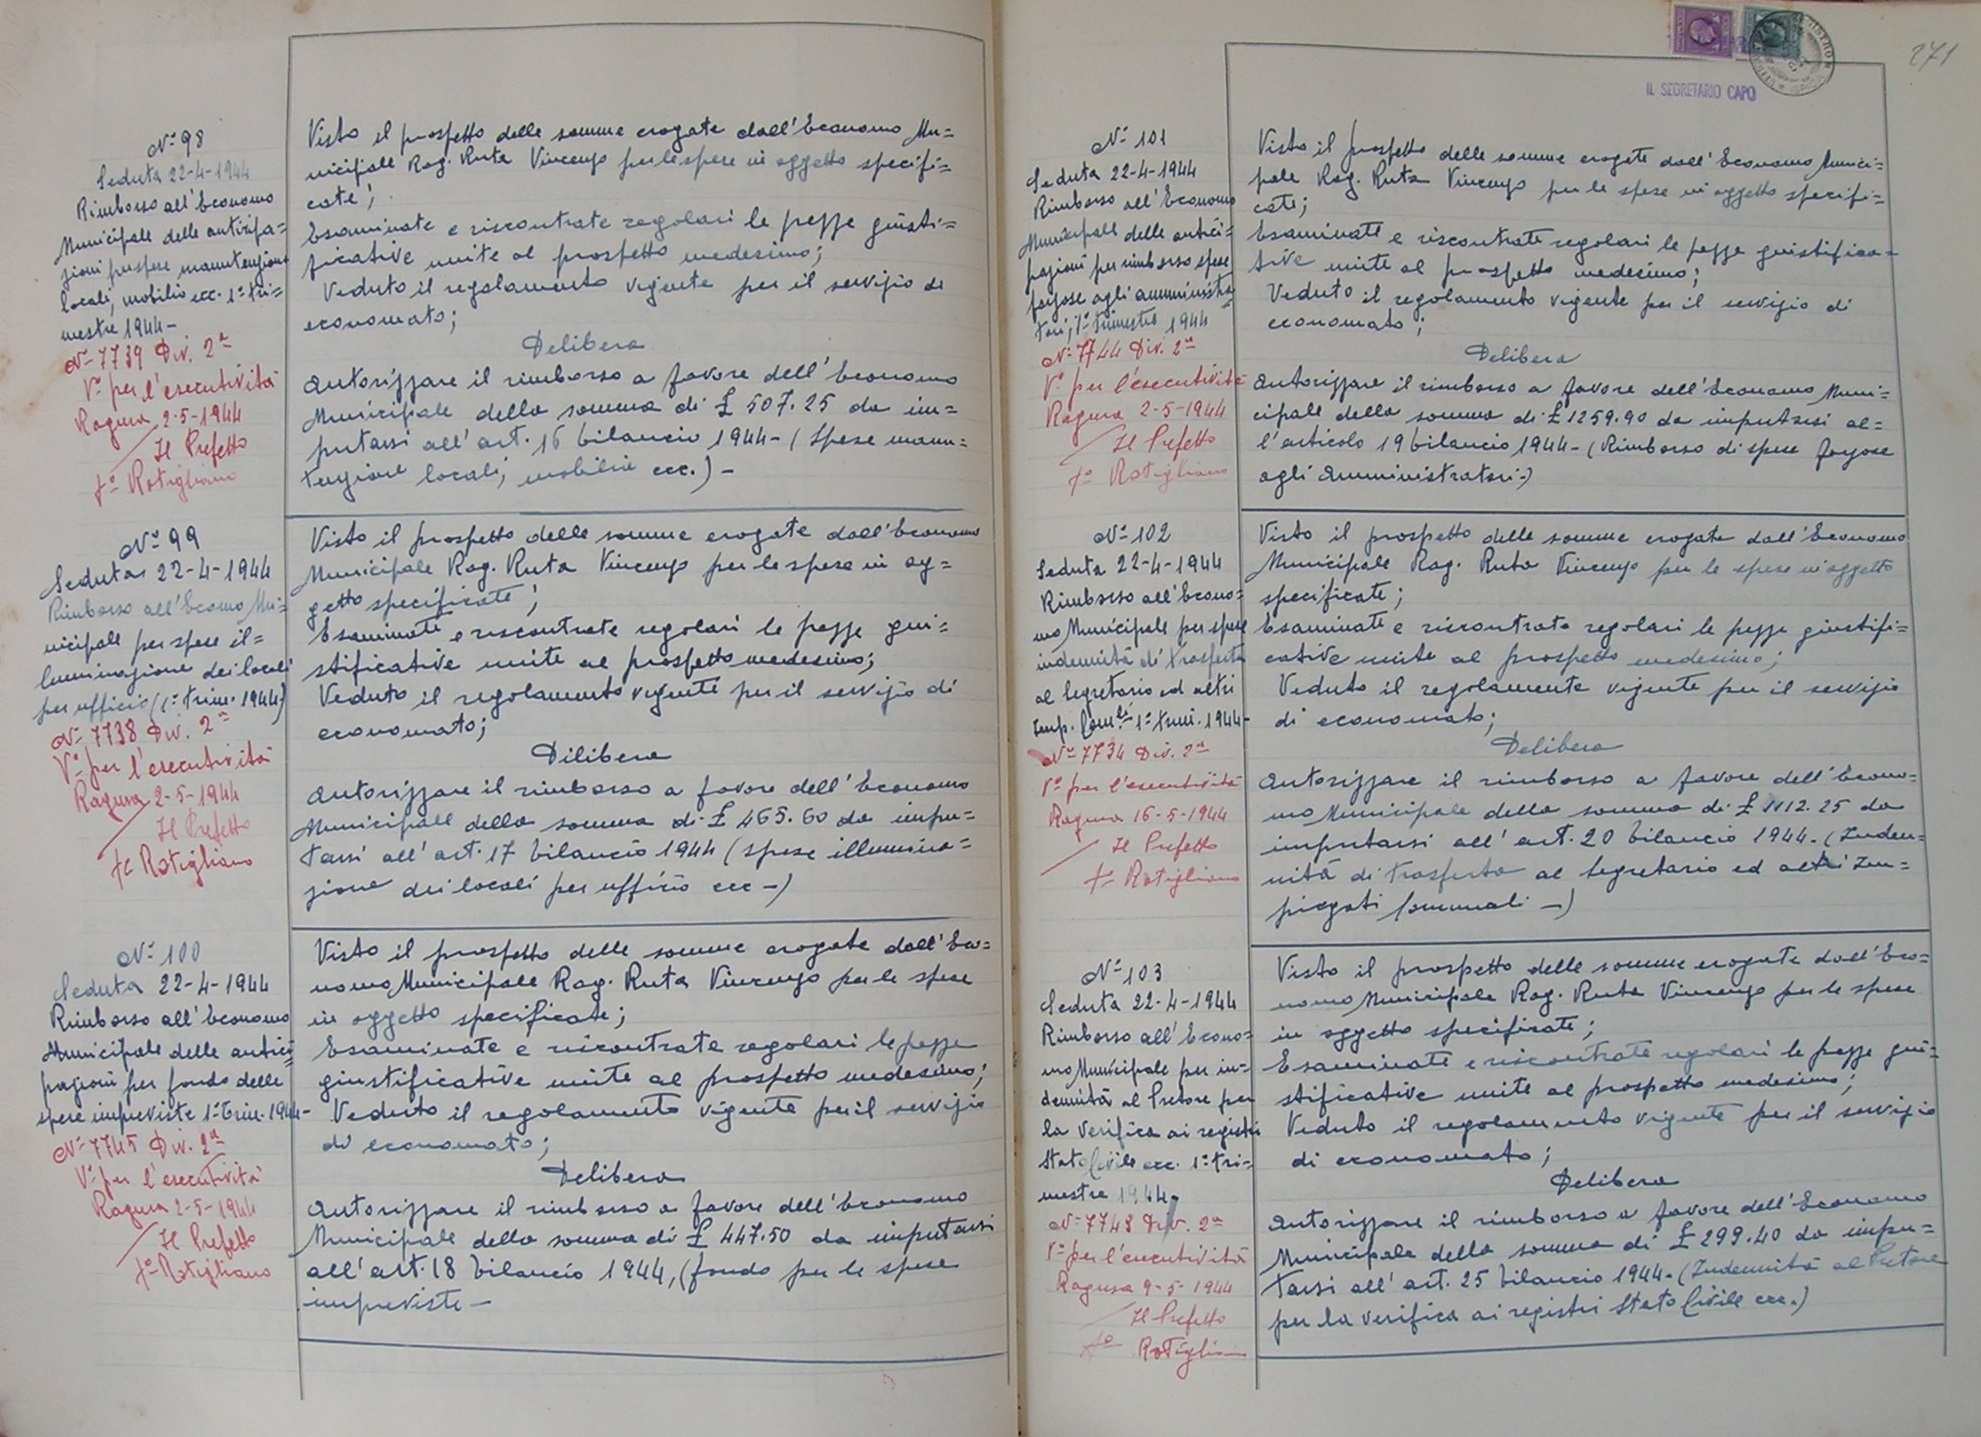 N° 98
Seduta 22-4-1944
Rimborso all'Economo
Municipale delle anticipa-
zioni per spese manutenzione
locali, mobilio ecc. 1° tri=
mestre 1944-
N° 7739 Div. 2ª
V° per l'esecutività
Ragusa 2-5-1944
Il Prefetto
f° Rotigliano
Visto il prospetto delle somme erogate dall'Economo Mu=
nicipale Rag. Ruta Vincenzo per le spese in oggetto specifi=
cate;
Esaminate e riscontrate regolari le pezze giusti=
ficative unite al prospetto medesimo;
Veduto il regolamento vigente per il servizio di
economato;
Delibera
Autorizzare il rimborso a favore dell'Economo
Municipale della somma di £ 507.25 da im=
putarsi all'art. 16 bilancio 1944- (Spese manu=
tenzione locali, mobilio ecc.) -
N° 99
Seduta 22-4-1944
Rimborso all'Ecomo Mu=
nicipale per spese il=
luminazione dei locali
per ufficio (1° trim. 1944)
N° 7738 Div. 2ª
V° per l'esecutività
Ragusa 2-5-1944
Il Prefetto
f° Rotigliano
Visto il prospetto delle somme erogate dall'Economo
Municipale Rag. Ruta Vincenzo per le spese in og=
getto specificate;
Esaminate e riscontrate regolari le pezze giu=
stificative unite al prospetto medesimo;
Veduto il regolamento vigente per il servizio di
economato;
Dilibera
Autorizzare il rimborso a favore dell'Economo
Municipale della somma di £ 465.60 da impu=
tarsi all'art. 17 bilancio 1944 (spese illumina=
zione dei locali per ufficio ecc -)
N° 100
Seduta 22-4-1944
Rimborso all'Economo
Municipale delle antici
pazioni per fondo delle
spese impreviste 1° Trim. 1944-
N° 7745 Div. 2ª
V° per l'esecutività
Ragusa 2-5-1944
Il Prefetto
f° Rotigliano
Visto il prospetto delle somme erogate dall'Eco=
nomo Municipale Rag. Ruta Vincenzo per le spese
in oggetto specificate;
Esaminate e riscontrate regolari le pezze
giustificative unite al prospetto medesimo;
Veduto il regolamento vigente per il servizio
di economato;
Delibera
Autorizzare il rimborso a favore dell'Economo
Municipale della somma di £ 447.50 da imputarsi
all'art. 18 bilancio 1944, (fondo per le spese
impreviste -
271
IL SEGRETARIO CAPO
N° 101
Seduta 22-4-1944
Rimborso all'Economo
Municipale delle antici=
pazioni per rimborso spese
forzose agli amministra
tori, 1° trimestre 1944
N° 7744 Div. 2ª
V° per l'esecutività
Ragusa 2-5-1944
Il Prefetto
f° Rotigliano
Visto il prospetto delle somme erogate dall'Economo Munici=
pale Rag. Ruta Vincenzo per le spese in oggetto specifi=
cate;
Esaminate e riscontrate regolari le pezze giustifica=
tive unite al prospetto medesimo;
Veduto il regolamento vigente per il servizio di
economato;
Delibera
Autorizzare il rimborso a favore dell'Economo Muni=
cipale della somma di £ 1259.90 da imputarsi al=
l'articolo 19 bilancio 1944- (Rimborso di spese forzose
agli Amministratori-)
N° 102
Seduta 22-4-1944
Rimborso all'Econo=
mo Municipale per spese
indennità di trasferta
al Segretario ed altri
Imp. Com.li 1° trim. 1944-
N° 7734 Div. 2ª
V° per l'esecutività
Ragusa 16-5-1944
Il Prefetto
f° Rotigliano
Visto il prospetto delle somme erogate dall'Economo
Municipale Rag. Ruta Vincenzo per le spese in oggetto
specificate;
Esaminate e riscontrate regolari le pezze giustifi=
cative unite al prospetto medesimo;
Veduto il regolamente vigente per il servizio
di economato;
Delibera
Autorizzare il rimborso a favore dell'Econo=
mo Municipale della somma di £ 1112.25 da
imputarsi all'art. 20 bilancio 1944. (Inden=
nità di trasferta al Segretario ed altri Im=
piegati Comunali -)
N° 103
Seduta 22-4-1944
Rimborso all'Econo=
mo Municipale per in=
dennità al Pretore per
la verifica ai registri
Stato Civile ecc. 1° tri=
mestre 1944-
N° 7743 Div. 2ª
V° per l'esecutività
Ragusa 9-5-1944
Il Prefetto
f° Rotigliano
Visto il prospetto delle somme erogate dall'Eco=
nomo Municipale Rag. Ruta Vincenzo per le spese
in oggetto specificate;
Esaminate e riscontrate regolari le pezze giu=
stificative unite al prospetto medesimo;
Veduto il regolamento vigente per il servizio
di economato;
Delibera
Autorizzare il rimborso a favore dell'Economo
Municipale della somma di £ 299.40 da impu=
tarsi all'art. 25 bilancio 1944- (Indennità al Pretore
per la verifica ai registri Stato Civile ecc.)